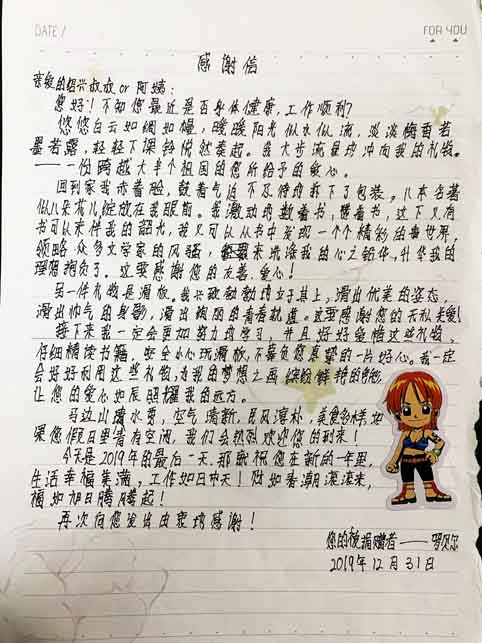 DATE /
FOR YOU
感谢信
亲爱的绍兴叔叔or阿姨:
您好!不知您最近是否身体健康,工作顺利?
悠悠白云如绸如缎,暖暖阳光似水似流,淡淡梅香若
墨若露,轻轻下课铃悦然奏起。我大步流星地冲向我的礼物。
——一份跨越大半个祖国的您所给予的爱心。
回到家我赤着脸,鼓着气迫不及待地拆下了包装。几本名著
似几朵花儿绽放在我眼前。我激动地数着书,摸着书,这下又有
书可以来伴我的韶光,我又可以从书中发现一个个精彩的世界,
领略众多文学家的风骚,来洗涤我的心之铅华,升华我的
理想抱负了。这要感谢您的友善、爱心!
另一件礼物是滑板。我兴致勃勃地立于其上,滑出优美的姿态,
滑出帅气的身影,滑出绚丽的青春轨迹。这要感谢您的无私关爱!
接下来我一定会更加努力地学习,并且好好爱惜这些礼物,
仔细精读书籍,安全小心玩滑板,不辜负您喜望的一片好心。我一定
会好好利用这些礼物,为我的梦想之画缤纷鲜艳的色彩,
让您的爱心如辰照耀我的远方。
马边山清水秀,空气清新,民风淳朴,美食多样,如
果您假日里若有空闲,我们会热烈欢迎您的到来!
今天是2019年的最后一天,那就祝您在新的一年里,
生活幸福美满,工作如日中天!财如春潮滚滚来,
福如旭日腾腾起!
再次向您发出由衷地感谢!
您的被捐赠者——
2019年12月31日